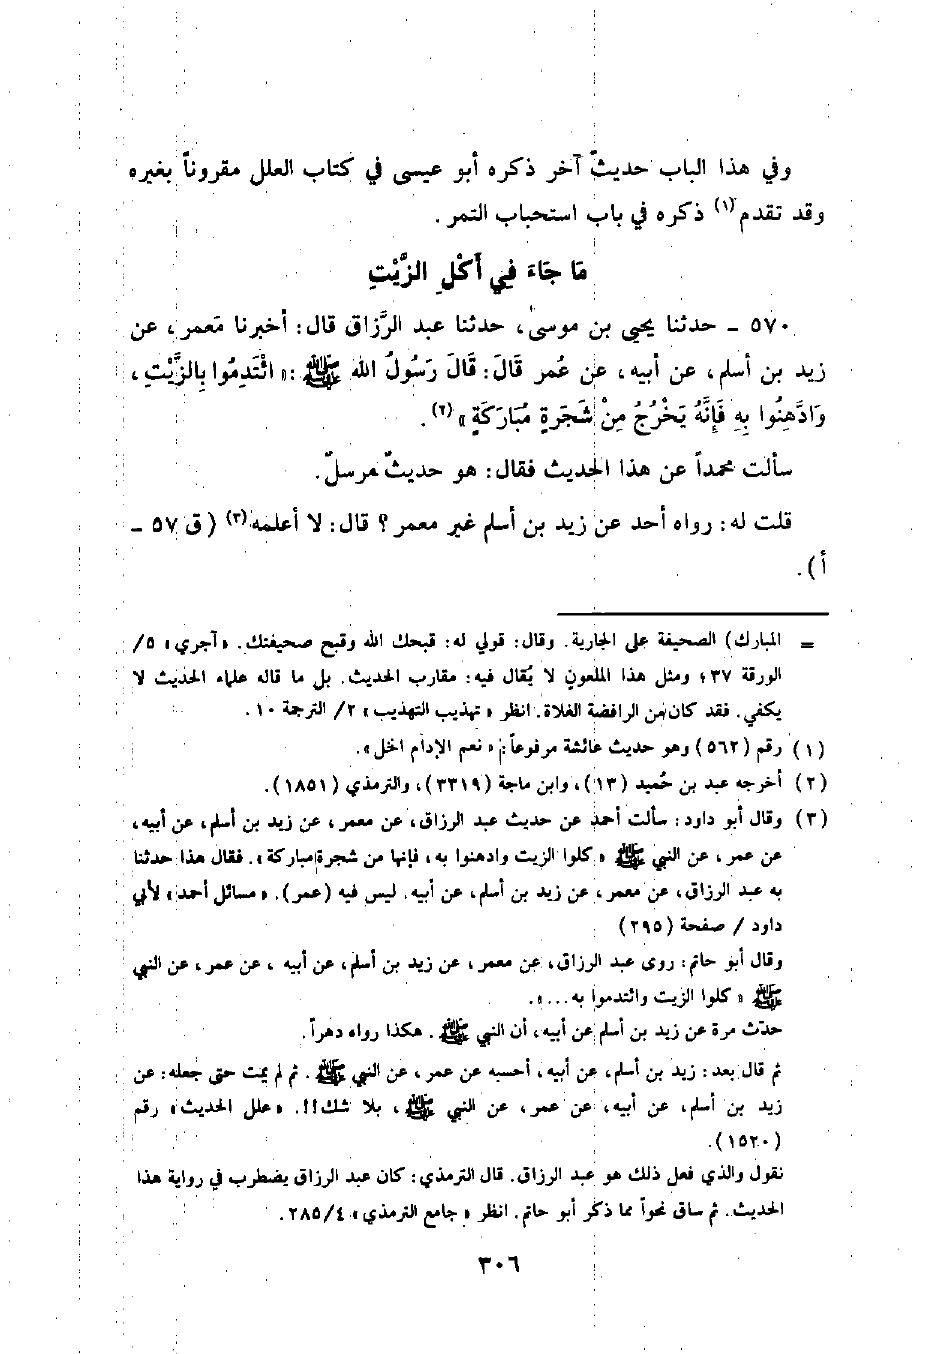 وفي هذا الباب حديثٌ آخر ذكره أبو عيسى في كتاب العلل مقروناً بغيره
وقد تقدم(١) ذكره في باب استحباب التمر .
مَا جَاءَ فِي أَكْلِ الزَّيْتِ
٥٧٠ ـ حدثنا يحيى بن موسى، حدثنا عبد الرَّزاق قال: أخبرنا مَعمر، عن
زيد بن أسلم، عن أبيه، عن عُمر قَالَ: قَالَ رَسُولُ الله ﷺ :« ائْتَدِمُوا بِالزَّيْتِ ،
وَادَّهِنُوا بِهِ فَإِنَّهُ يَخْرُجُ مِنْ شَجَرَةٍ مُبَارَكَةٍ »(٢).
سألت محمداً عن هذا الحديث فقال: هو حديثٌ مرسلٌ.
قلت له: رواه أحد عن زيد بن أسلم غير معمر؟ قال: لا أعلمه(٣) (ق ٥٧ ـ
أ).
= المبارك) الصحيفة على الجارية. وقال: قولي له: قبحك الله وقبح صحيفتك. «آجري» ٥/
الورقة ٣٧؛ ومثل هذا الملعون لا يُقال فيه: مقارب الحديث. بل ما قاله علماء الحديث لا
يكفي. فقد كان من الرافضة الغلاة. انظر «تهذيب التهذيب» ٢/ الترجمة ١٠.
(١) رقم (٥٦٢) وهو حديث عائشة مرفوعاً: «نعم الإدام الخل».
(٢) أخرجه عبد بن حُميد (١٣)، وابن ماجة (٣٣١٩)، والترمذي (١٨٥١).
(٣) وقال أبو داود: سألت أحمد عن حديث عبد الرزاق، عن معمر، عن زيد بن أسلم، عن أبيه،
عن عمر، عن النبي ﷺ «كلوا الزيت وادهنوا به، فإنها من شجرة مباركة». فقال هذا حدثنا
به عبد الرزاق، عن معمر، عن زيد بن أسلم، عن أبيه. ليس فيه (عمر). «مسائل أحمد» لأبي
داود / صفحة (٢٩٥)
وقال أبو حاتم: روى عبد الرزاق، عن معمر، عن زيد بن أسلم، عن أبيه ، عن عمر، عن النبي
ﷺ «كلوا الزيت وائتدموا به...».
حدّث مرة عن زيد بن أسلم عن أبيه، أن النبي ﷺ . هكذا رواه دهراً.
ثم قال بعد: زيد بن أسلم، عن أبيه، أحسبه عن عمر، عن النبي ﷺ . ثم لم يمت حتى جعله: عن
زيد بن أسلم، عن أبيه، عن عمر، عن النبي ﷺ ، بلا شك!!. «علل الحديث» رقم
(١٥٢٠).
نقول والذي فعل ذلك هو عبد الرزاق. قال الترمذي: كان عبد الرزاق يضطرب في رواية هذا
الحديث. ثم ساق نحواً مما ذكر أبو حاتم. انظر «جامع الترمذي» ٢٨٥/٤.
٣٠٦